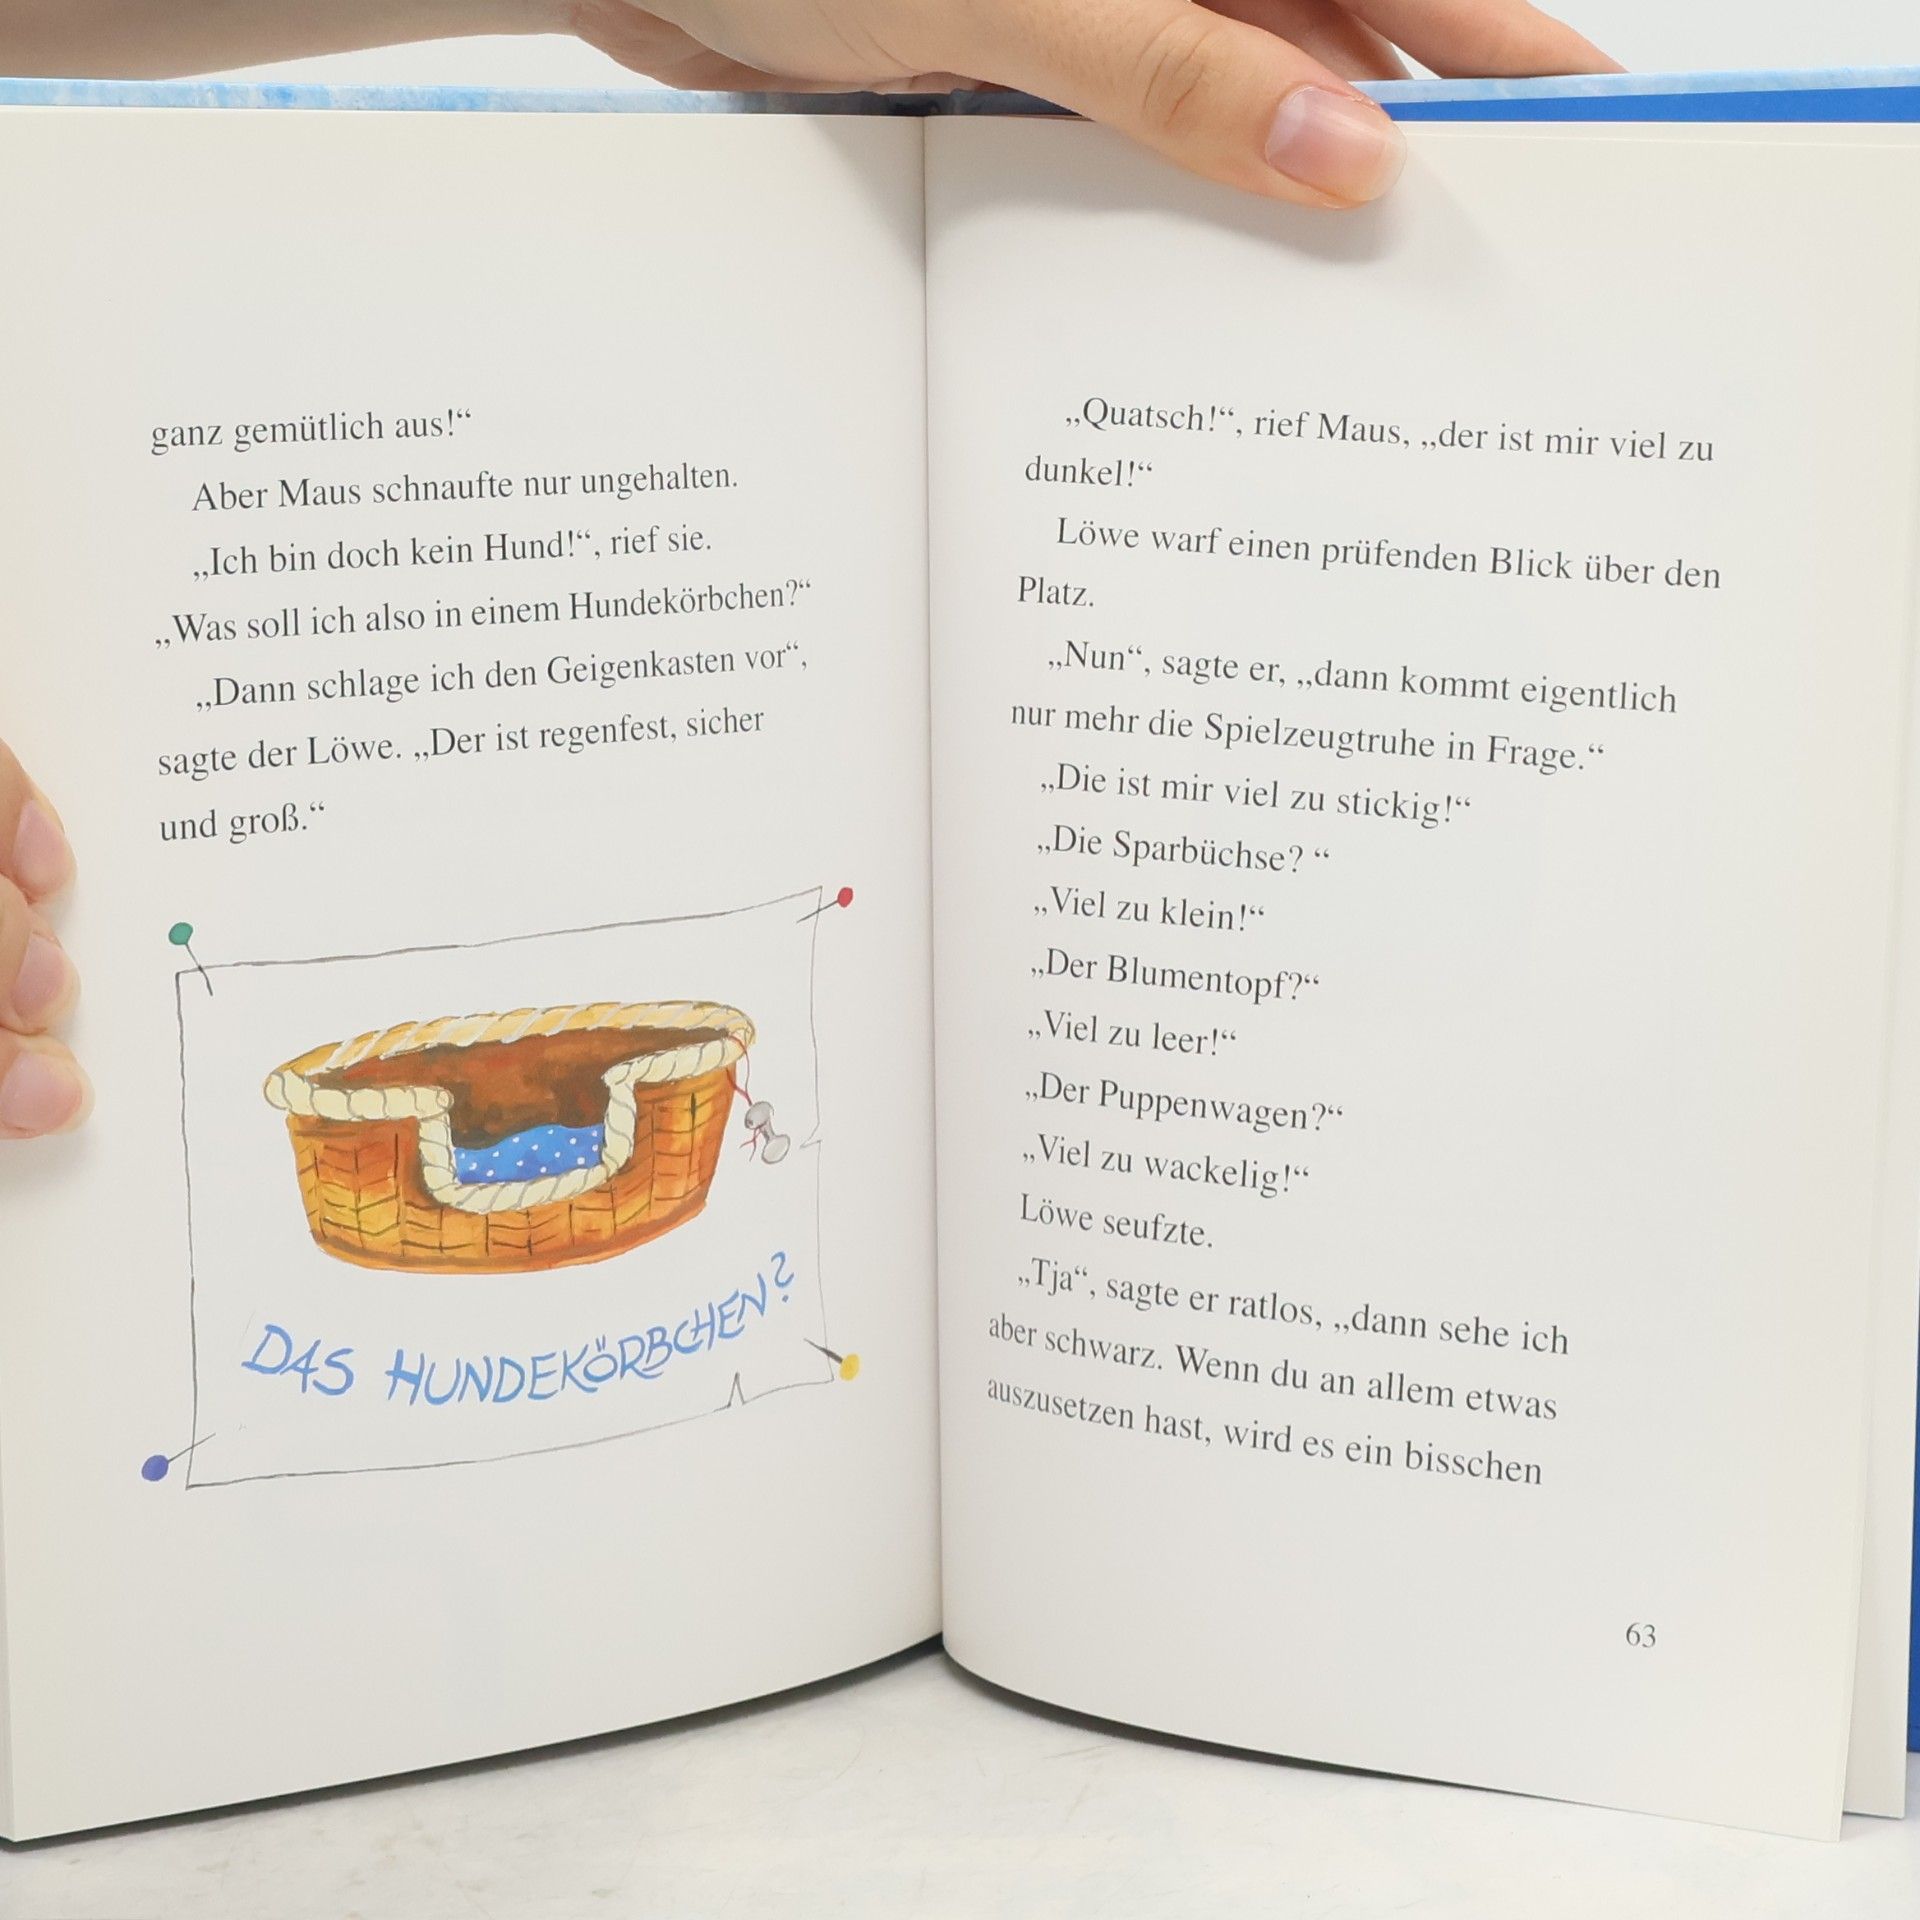 ganz gemütlich aus!“
Aber Maus schnaufte nur ungehalten.
„Ich bin doch kein Hund!“, rief sie.
„Was soll ich also in einem Hundekörbchen?“
„Dann schlage ich den Geigenkasten vor“,
sagte der Löwe. „Der ist regenfest, sicher
und groß.“
DAS HUNDEKÖRBCHEN?
„Quatsch!“, rief Maus, „der ist mir viel zu
dunkel!“
Löwe warf einen prüfenden Blick über den
Platz.
„Nun“, sagte er, „dann kommt eigentlich
nur mehr die Spielzeugtruhe in Frage.“
„Die ist mir viel zu stickig!“
„Die Sparbüchse? “
„Viel zu klein!“
„Der Blumentopf?“
„Viel zu leer!“
„Der Puppenwagen?“
„Viel zu wackelig!“
Löwe seufzte.
„Tja“, sagte er ratlos, „dann sehe ich
aber schwarz. Wenn du an allem etwas
auszusetzen hast, wird es ein bisschen
63